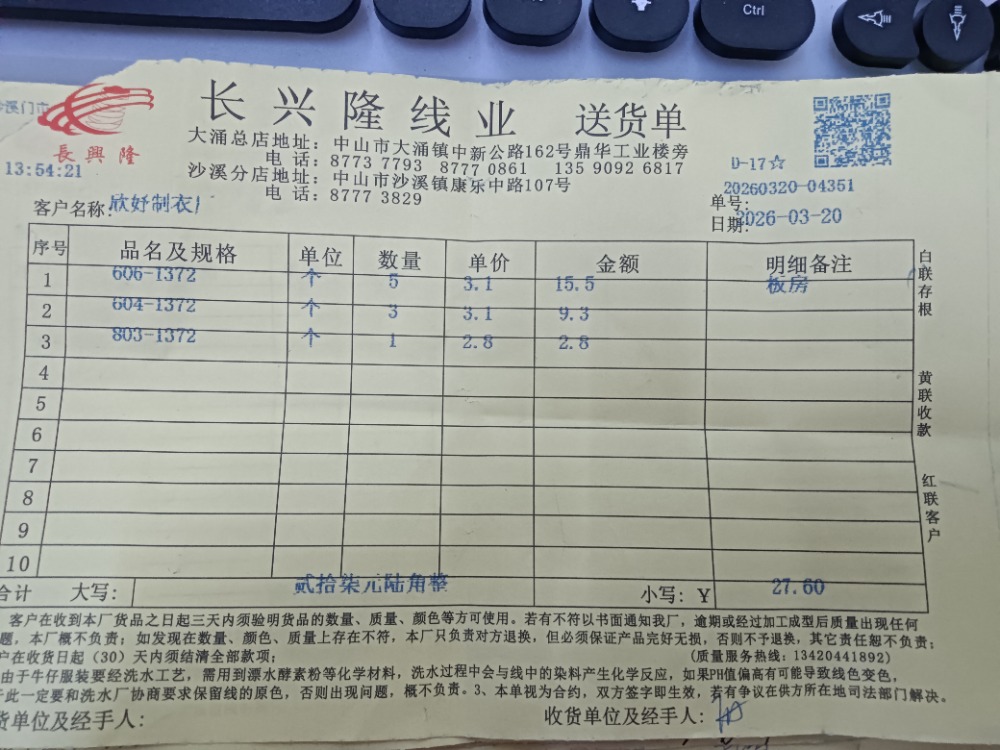 Ctrl
沙溪门市
13:54:21
長興隆
长兴隆线业 送货单
大涌总店地址：中山市大涌镇中新公路162号鼎华工业楼旁
电话：8773 7793 8777 0861 135 9092 6817
沙溪分店地址：中山市沙溪镇康乐中路107号
电话：8777 3829
D-17☆
单号：20260320-04351
客户名称：欣妤制衣厂
日期：2026-03-20
序号 品名及规格 单位 数量 单价 金额 明细备注
1 606-1372 个 5 3.1 15.5 板房
2 604-1372 个 3 3.1 9.3
3 803-1372 个 1 2.8 2.8
4
5
6
7
8
9
10
合计 大写：贰拾柒元陆角整 小写：￥ 27.60
白联存根
黄联收款
红联客户
客户在收到本厂货品之日起三天内须验明货品的数量、质量、颜色等方可使用。若有不符以书面通知我厂，逾期或经过加工成型后质量出现任何
题，本厂概不负责；如发现在数量、颜色、质量上存在不符，本厂只负责对方退换，但必须保证产品完好无损，否则不予退换，其它责任恕不负责；
户在收货日起（30）天内须结清全部款项； (质量服务热线：13420441892)
由于牛仔服装要经洗水工艺，需用到漂水酵素粉等化学材料，洗水过程中会与线中的染料产生化学反应，如果PH值偏高有可能导致线色变色，
于此一定要和洗水厂协商要求保留线的原色，否则出现问题，概不负责。3、本单视为合约，双方签字即生效，若有争议在供方所在地司法部门解决。
货单位及经手人： 收货单位及经手人：